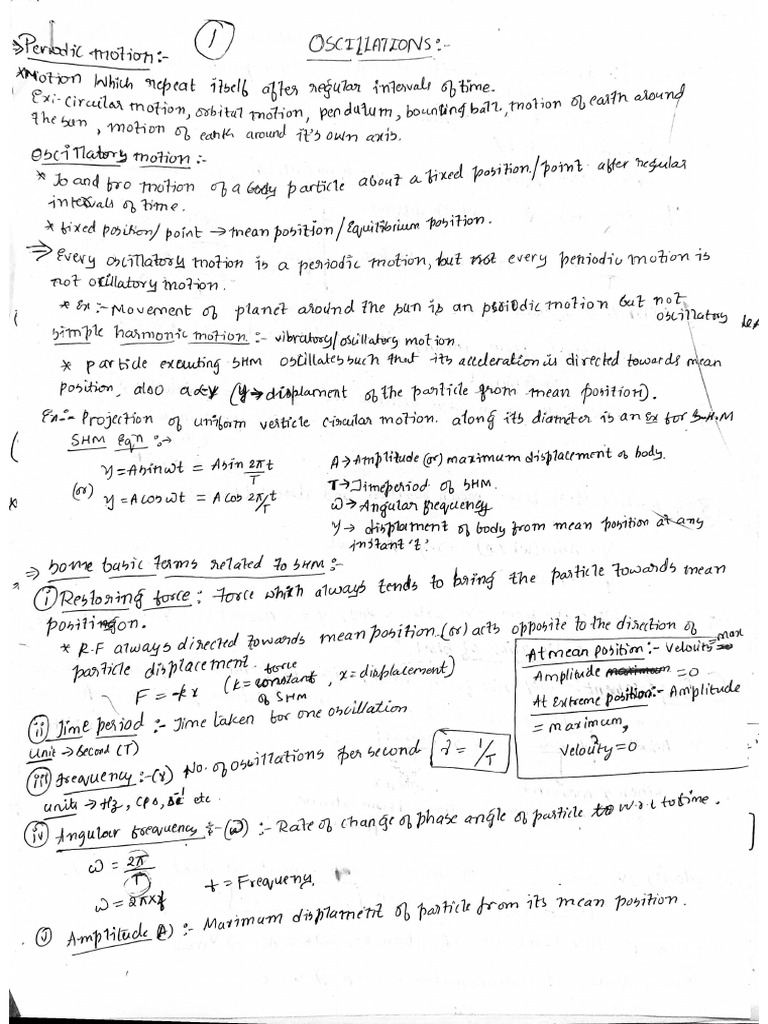 1
OSCILLATIONS:-
⇒Periodic motion:-
*Motion Which repeat itself after regular intervals of time.
Ex:- circular motion, orbital motion, pendulum, bounting ball, motion of earth around
the sun, motion of earth around it's own axis.
Oscillatory motion:-
* To and fro motion of a body particle about a fixed position/point after regular
intervals of time.
* fixed position/point → mean position/Equilibrium position.
⇒ Every oscillatory motion is a periodic motion, but not every periodic motion is
not oscillatory motion.
* Ex:- Movement of planet around the sun is an periodic motion but not
oscillatory
simple harmonic motion:- vibratory/oscillatory motion.
* particle executing SHM oscillates such that its acceleration is directed towards mean
position, also a∝y (y→displament of the particle from mean position).
Ex:- Projection of uniform verticle circular motion along its diameter is an Ex for S.H.M
SHM Eqn:→
y=Asinωt = Asin 2π/T t
(or) y=Acosωt = Acos 2π/T t
A→Amplitude (or) maximum displacement of body.
T→Timeperiod of SHM.
ω→Angular frequency
y→ displament of body from mean position at any
instant 't'.
⇒ Some basic terms related to SHM:-
(i) Restoring force: Force which always tends to bring the particle towards mean
position.
* R.F always directed towards mean position (or) acts opposite to the direction of
particle displacement.
F = -kx (k= force constant of SHM, x= displacement)
At mean position:- Velouity=max
Amplitude =0
At Extreme position:- Amplitude
= maximum,
Velouity=0
(ii) Time period:- Time taken for one oscillation
Unit → Second (T)
(iii) frequency:-(ν) No. of oscillations per second ν = 1/T
units → Hz, CPS, Sec-1 etc
(iv) Angular frequency:-(ω) :- Rate of change of phase angle of particle w.r.t to time.
ω = 2π/T
ω = 2π×f
f = Frequency.
(v) Amplitude (A):- Maximum displament of particle from its mean position.